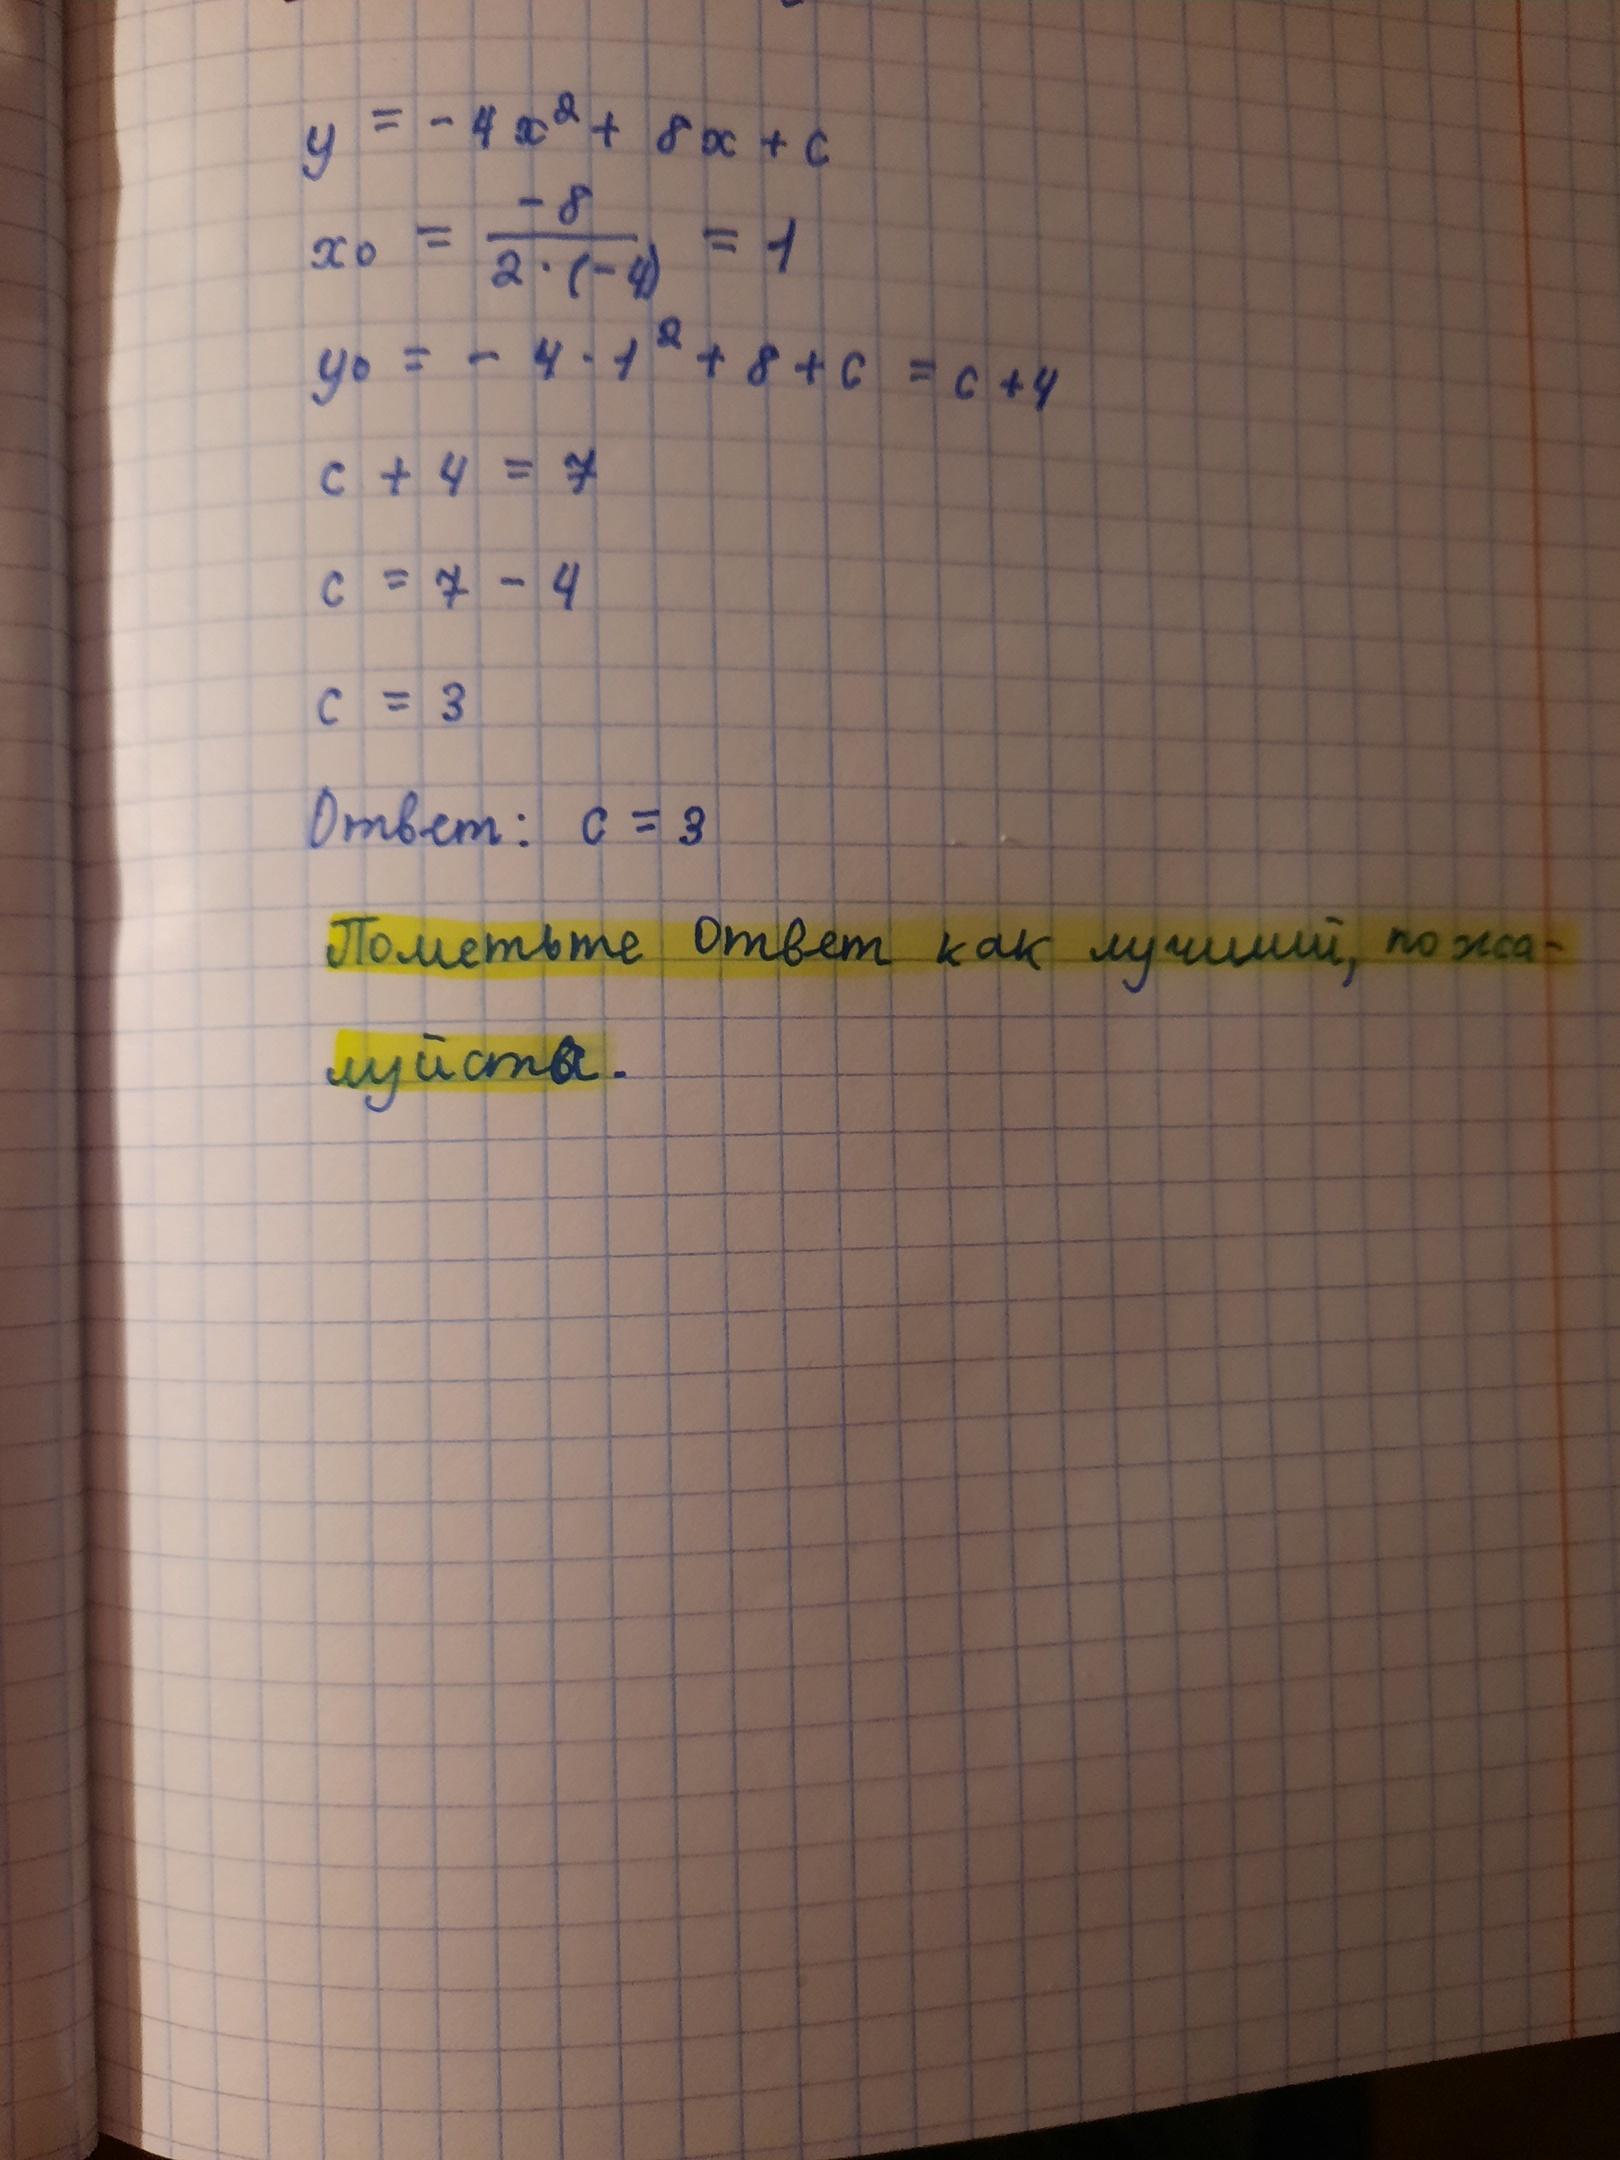 y = - 4x² + 8x + c
x₀ = -8 / 2·(-4) = 1
y₀ = - 4 · 1² + 8 + c = c + 4
c + 4 = 7
c = 7 - 4
c = 3
Ответ: c = 3
Пометьте ответ как лучший, пожа-
луйста.